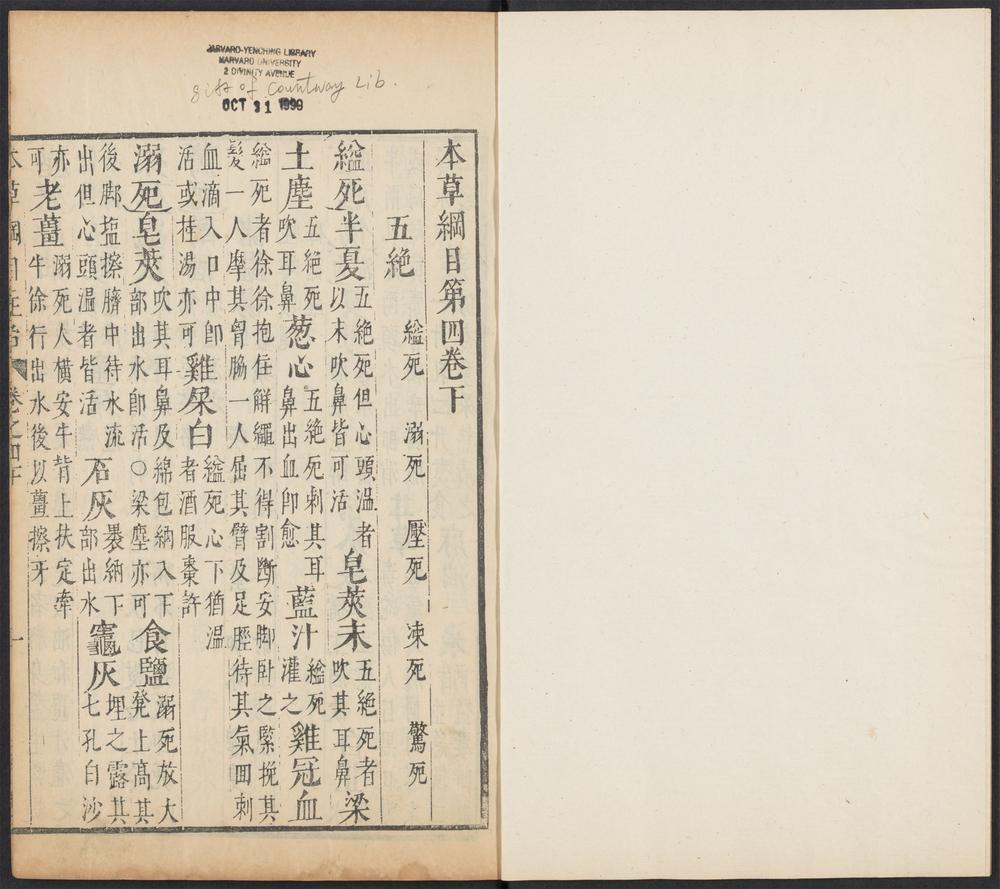 HARVARD-YENCHING LIBRARY
HARVARD UNIVERSITY
2 DIVINITY AVENUE
gift of Countway Lib.
OCT 31
本草綱目第四卷下
五絕 縊死 溺死 壓死 凍死 驚死
縊死半夏五絕死但心頭溫者以末吹鼻皆可活皂莢末五絕死者吹其耳鼻梁
土塵五絕死吹耳鼻葱心五絕死刺其耳鼻出血即愈藍汁縊死灌之雞冠血
縊死者徐徐抱住解繩不得割斷安脚臥之緊挽其髮一人摩其胷脇一人屈其臂及足脛待其氣回刺
血滴入口中即活或桂湯亦可雞屎白縊死心下猶溫者酒服棗許
溺死皂莢吹其耳鼻及綿包納入下部出水即活○梁塵亦可食鹽溺死放大凳上高其
後脚塩擦臍中待水流出但心頭溫者皆活石灰裹納下部出水竈灰埋之露其七孔白沙
亦可老薑溺死人橫安牛背上扶定牽牛徐行出水後以薑擦牙
本草綱目主治 卷之四下 一